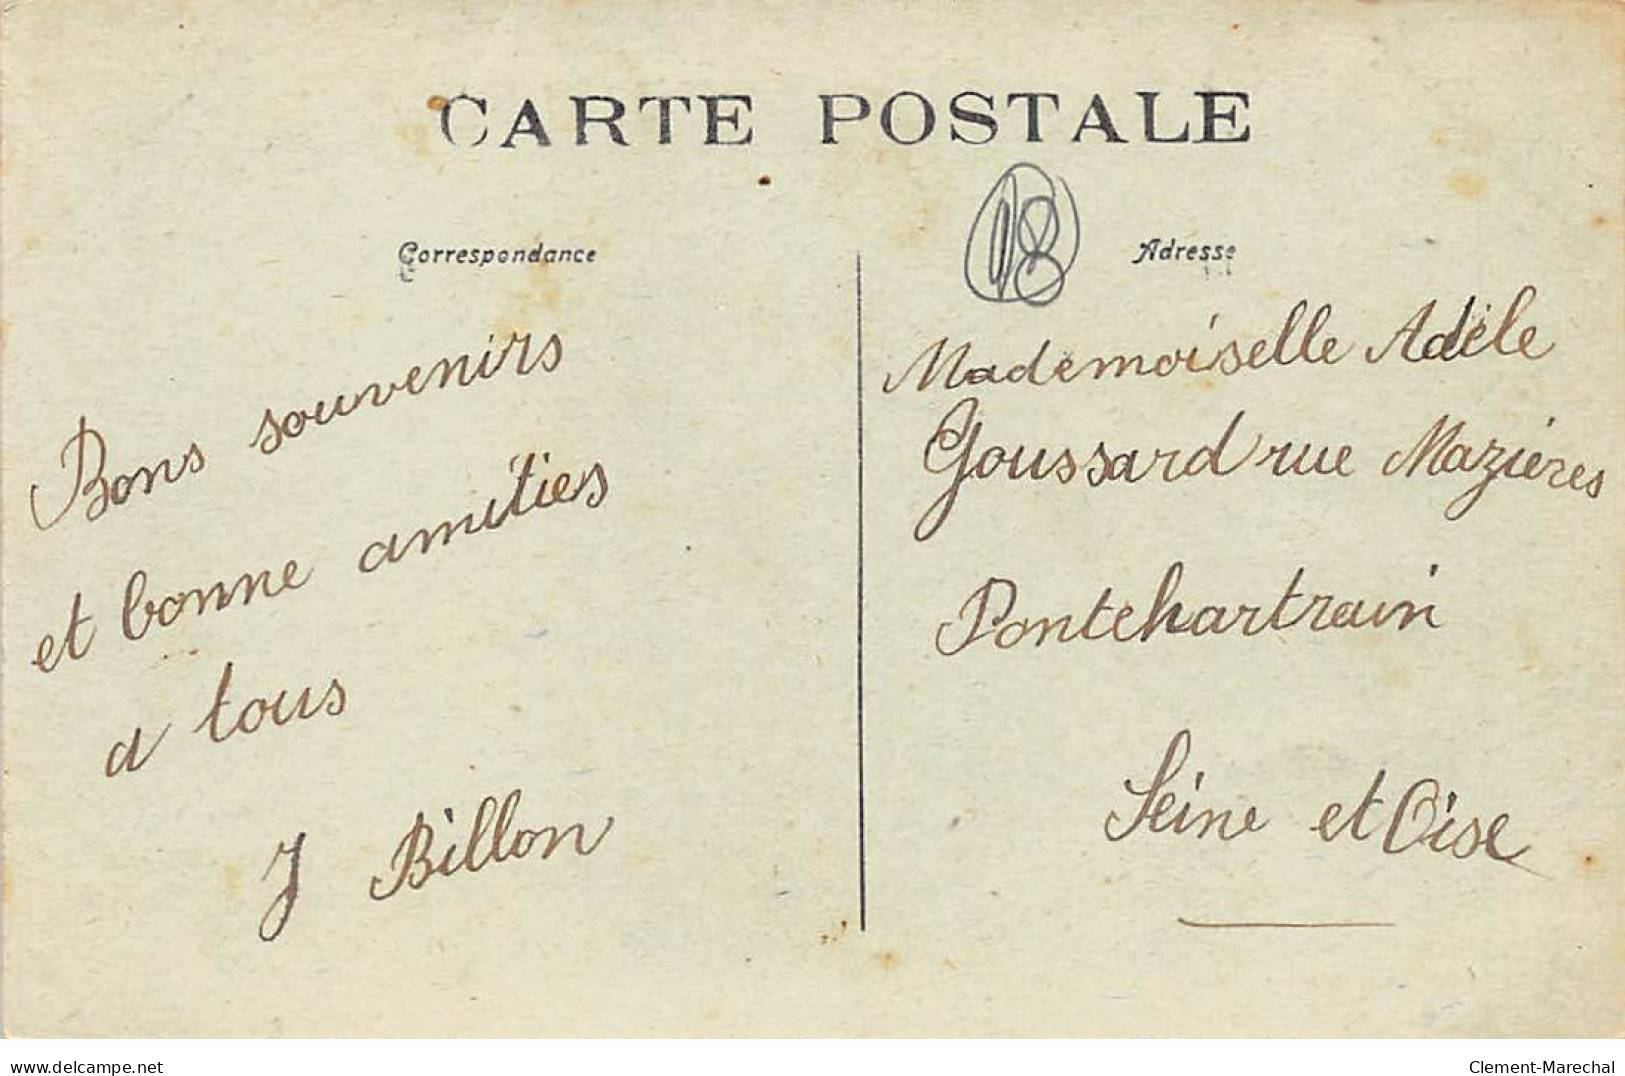 CARTE POSTALE
18
Correspondance
Adresse
Bons souvenirs
et bonne amitiés
a tous
J Billon
Mademoiselle Adèle
Goussard rue Mazières
Pontchartrain
Seine et Oise
delcampe.net
Clement-Marechal